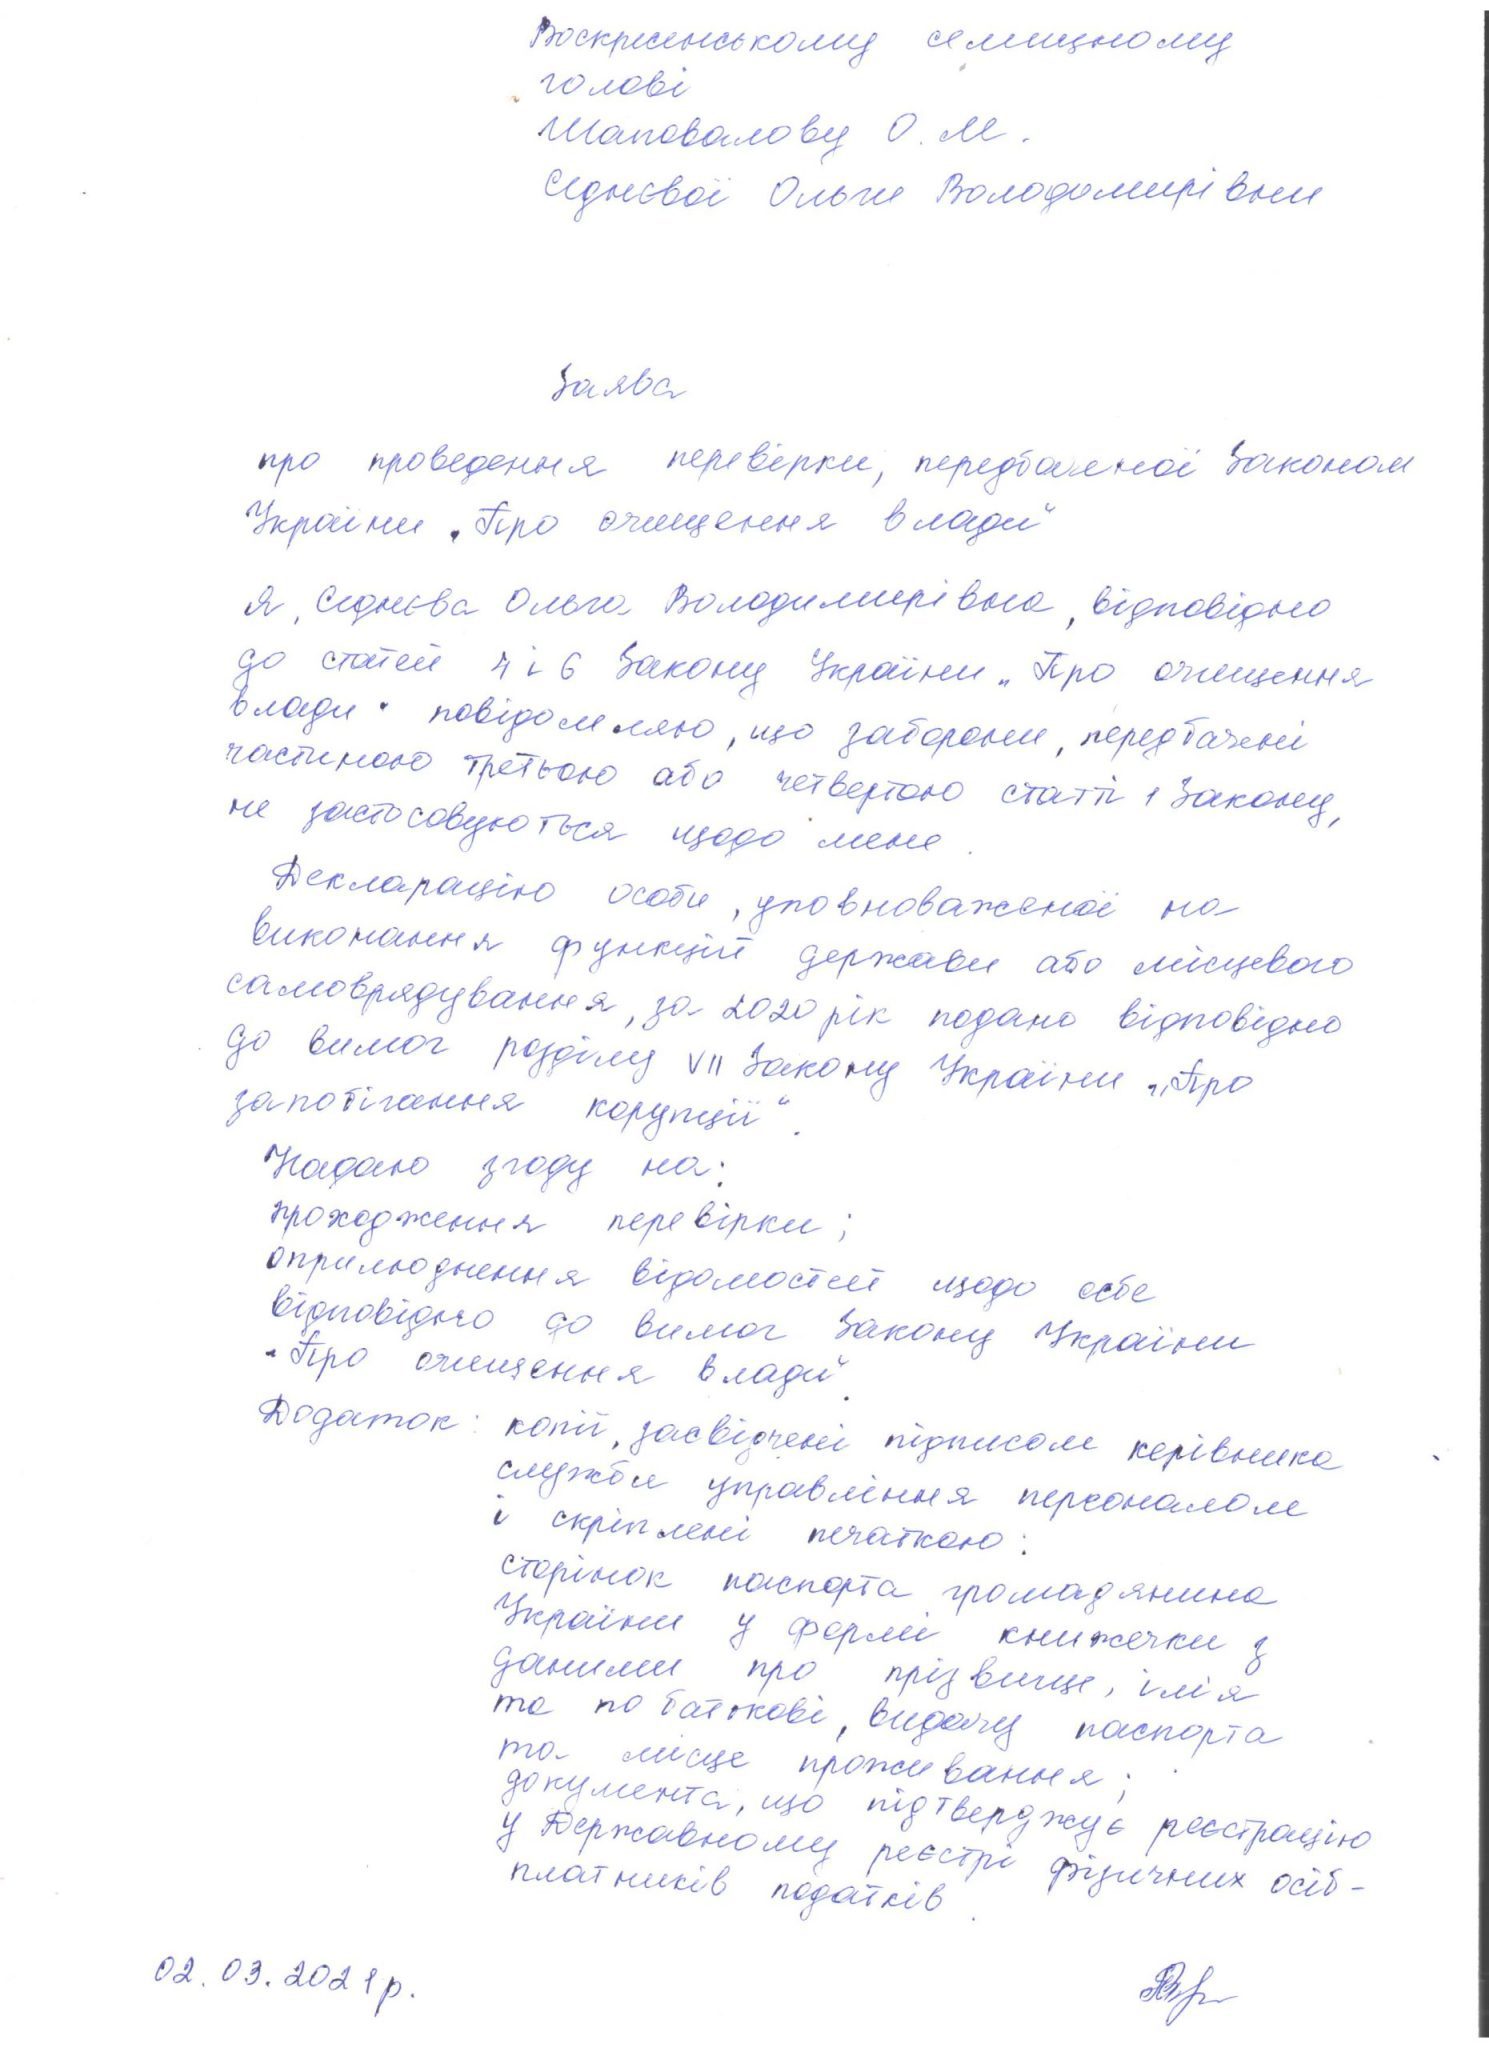 Воскресенському селищному
голові
Шаповалову О. М.
Сєднєвої Ольги Володимирівни
Заява
про проведення перевірки, передбаченої Законом
України „Про очищення влади"
Я, Сєднєва Ольга Володимирівна, відповідно
до статей 4 і 6 Закону України „Про очищення
влади" повідомляю, що заборони, передбачені
частиною третьою або четвертою статті 1 Закону,
не застосовуються щодо мене.
Декларацію особи, уповноваженої на
виконання функцій держави або місцевого
самоврядування, за 2020 рік подано відповідно
до вимог розділу VII Закону України „Про
запобігання корупції".
Надаю згоду на:
проходження перевірки;
оприлюднення відомостей щодо себе
відповідно до вимог Закону України
„Про очищення влади".
Додаток: копії, засвідчені підписом керівника
служби управління персоналом
і скріплені печаткою:
сторінок паспорта громадянина
України у формі книжечки з
даними про прізвище, ім'я
та по батькові, видачу паспорта
та місце проживання;
документа, що підтверджує реєстрацію
у Державному реєстрі фізичних осіб-
платників податків.
02.03.2021р.